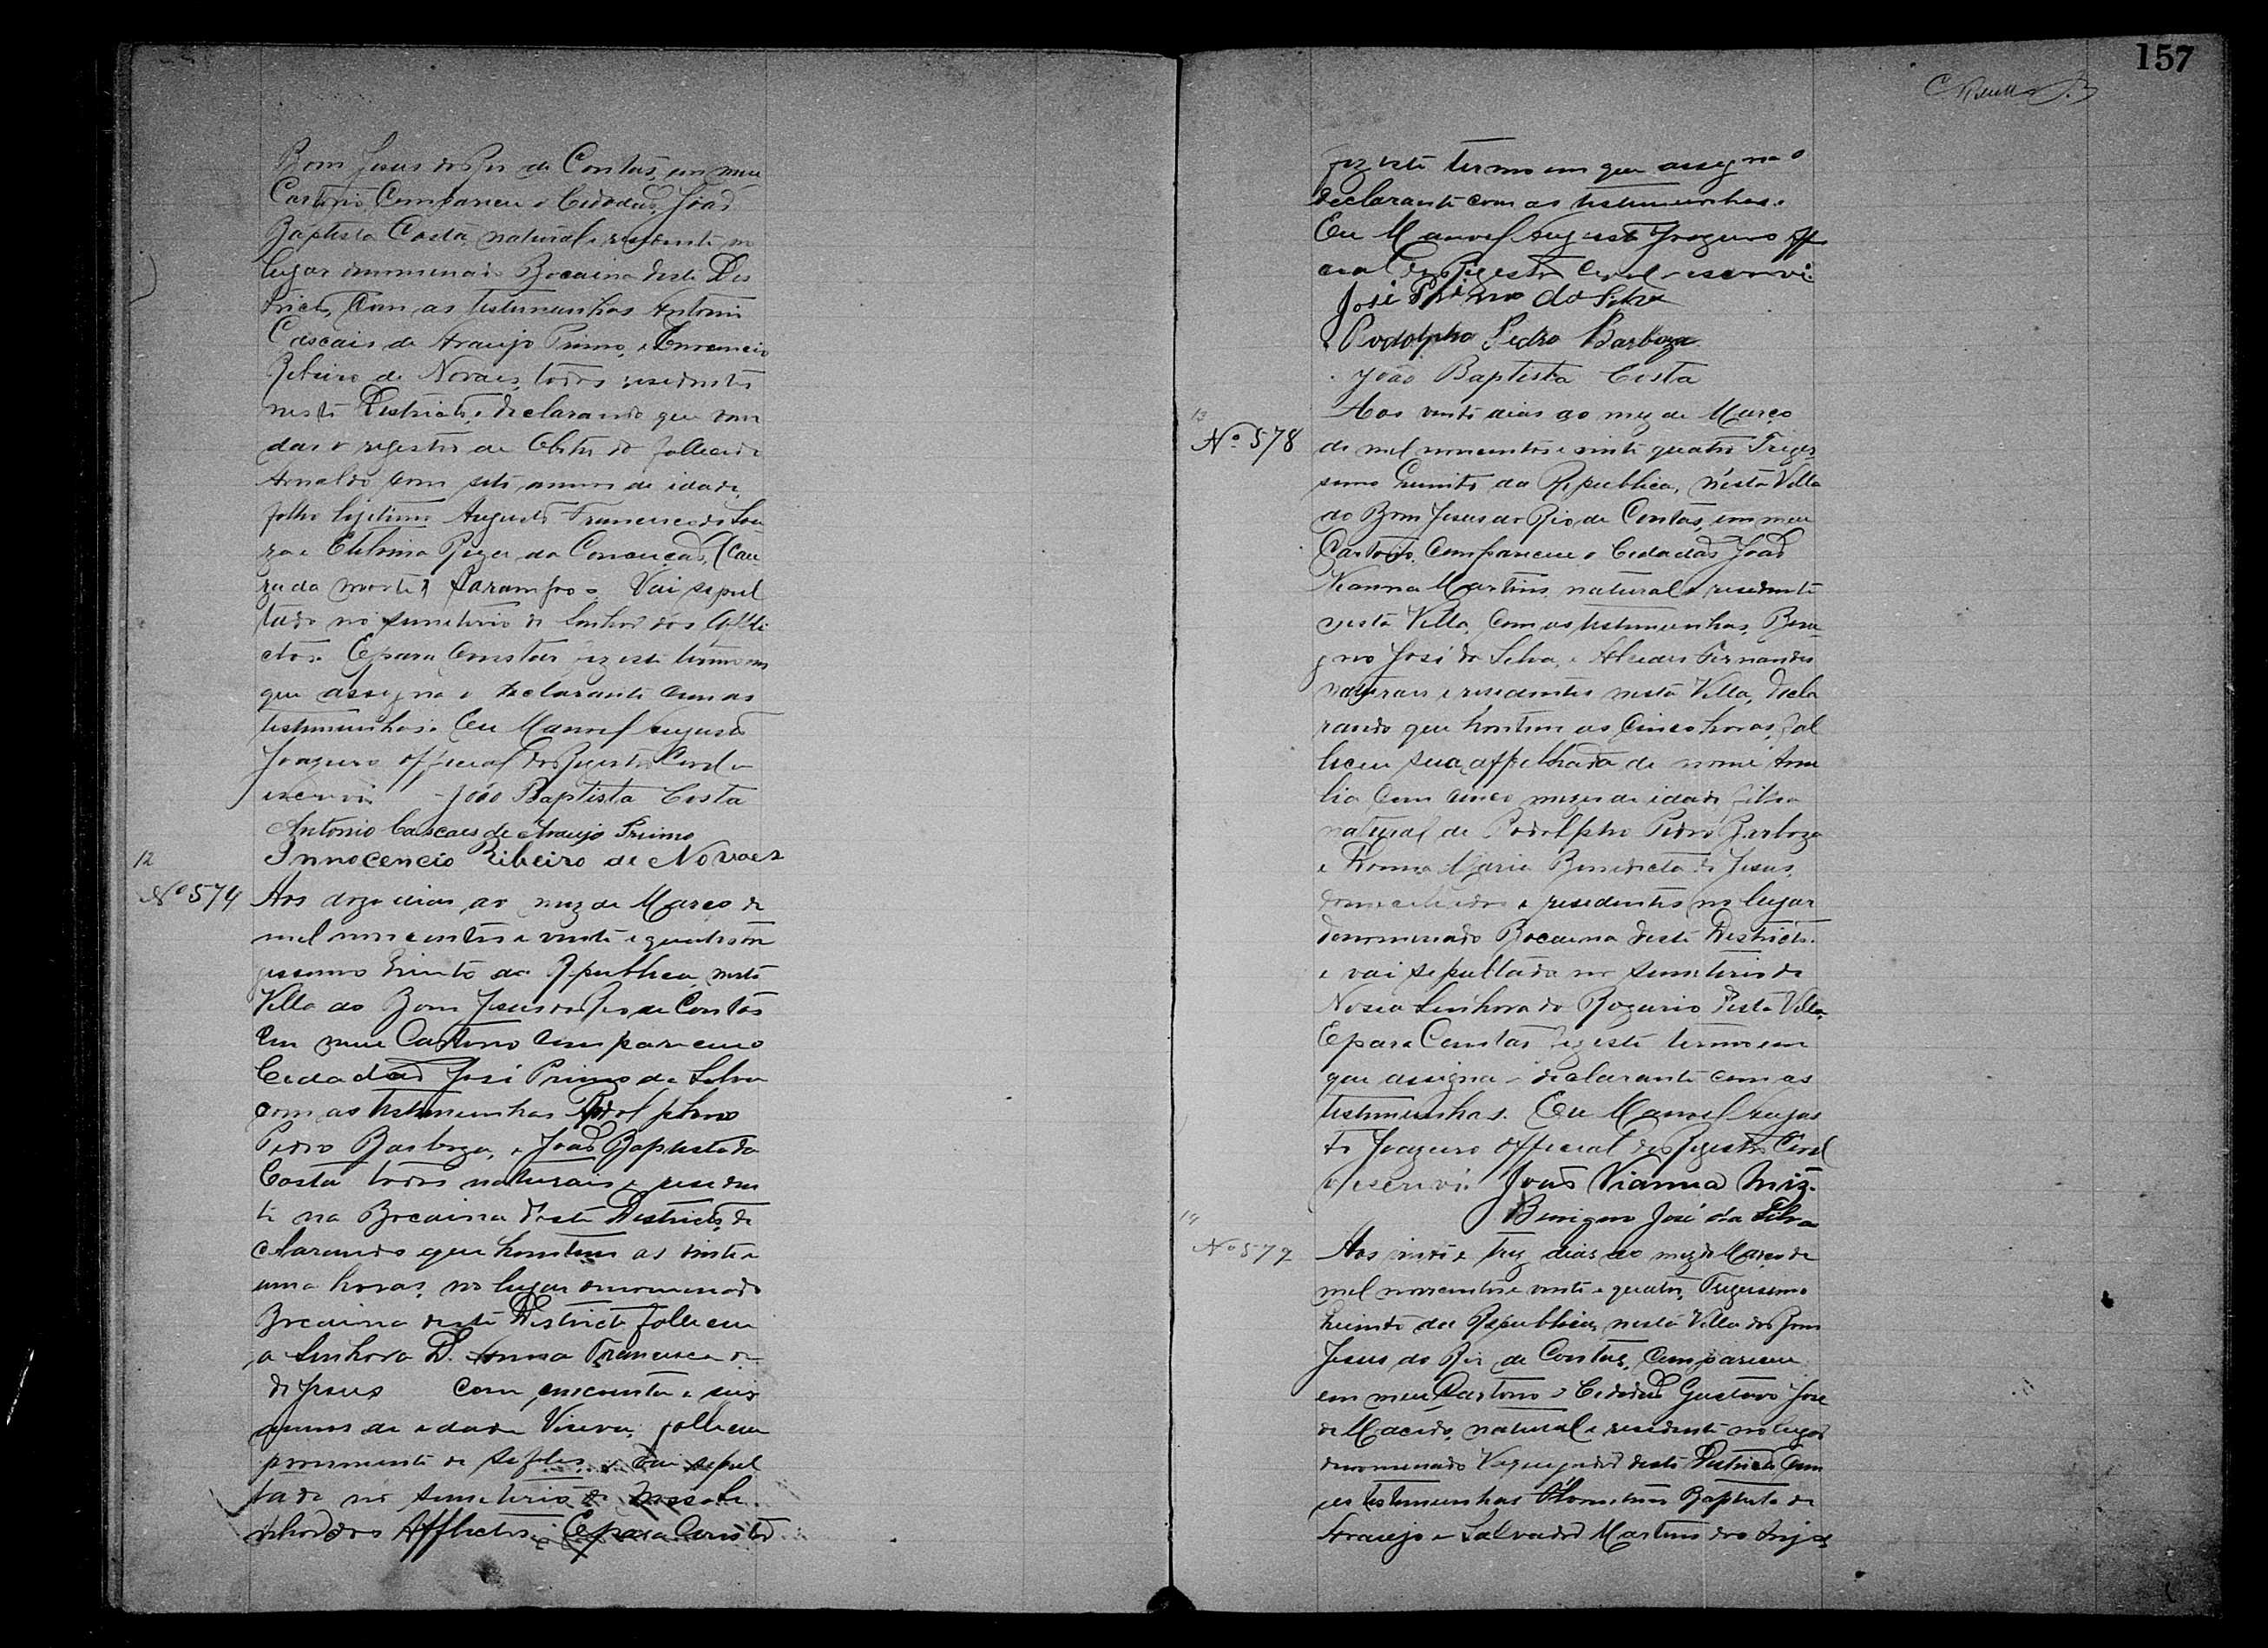 Bom Jesus do Rio de Contas, em meu
Cartorio, Compareceu o Cidadão João
Baptista Costa, natural e residente no
lugar denominado Bocaina deste Dis
tricto, Com as testemunhas Antonio
Cascais de Araujo Primo, e Innocencio
Ribeiro de Novaes, todos residentes
neste Districto, declarando que
das o registro de Obito do fallecido
Arnaldo com sete annos de idade,
filho ligitimo Augusto Francisco de Sou
za e Roza da Conceição, (Cau
za da morte) Sarampoo. Vai sepul
tado no semeterio do Senhor dos Affli
ctos. E para Constar fiz este termo em
que assigna o declarante com as
testemunhas. Eu Manoel Augusto
Joazeiro Official do Registro Civil o
escrevi. João Baptista Costa
Antonio Cascaes de Araujo Primo
Innocencio Ribeiro de Novaes
12
Nº 574 Aos doze dias do mez de Março de
mil novecentos e vinte e quatro
gessimo quinto da Republica, nesta
Villa do Bom Jesus do Rio de Contas
Em meu Cartorio Compareceu o
Cidadão José Primo da Silva
com as testemunhas Rodolphno
Pedro Barboza, e João Baptista da
Costa todos naturais e residen
te na Bocaina deste Districto, de
clarando que hontem as vinte e
uma horas, no lugar denominado
Bocaina deste Districto falleceu
a Senhora D. Anna Francisca de
de Jesus com cincoenta e seis
annos de edade Viuva, falleceu
de sefeles, e vai sepul
tada no semeterio de Nosso Se
nhor dos Afflictos. E para Constar
157
fiz este termo em que assigna o
declarante com as testemunhas.
Eu Manoel Augusto Joazeiro Offi
cial do Registro Civil o escrevi.
José Primo da Silva
Rodolpho Pedro Barboza
João Baptista Costa
13
Nº 578 Aos vinte dias do mez de Março
de mil novecentos e vinte quatro Triges
simo Quinto da Republica, nésta Villa
do Bom Jesus do Rio de Contas, em meu
Cartorio, Compareceu o Cidadão João
Vianna Martins, natural e residente
nesta Villa, Com as testemunhas, Beni
gno José da Silva, e Alcides Fernandes
naturais e residentes nesta Villa, decla
rando que hontem as Cinco horas, fal
leceu sua affilhada de nome Ame
lia Com cinco mezes de idade, filha
natural de Rodolpho Pedro Barboza
e Donna Maria Benedicta de Jesus,
domeciliados e residentes no lugar
denominado Bocaina deste Districto.
e vai sepultada no semeterio de
Nossa Senhora do Rozario desta Villa,
E para Constar fiz este termo em
que assigna o declarante com as
testemunhas. Eu Manoel Augus
to Joazeiro Official do Registro Civil
o escrevi. João Vianna Miz.
Benigno José da Silva
14
Nº 579 Aos vinte e trez dias do mez de Março de
mil novecentos e vinte e quatro, Tregessimo
Quinto da Republica, nesta Villa do Bom
Jesus do Rio de Contas, Compareceu
em meu Cartorio o Cidadão Gustavo José
de Macedo, natural e residente no lugar
denominado deste Districto Com
as testemunhas Baptista de
Araujo e Salvador Martins dos Anjos